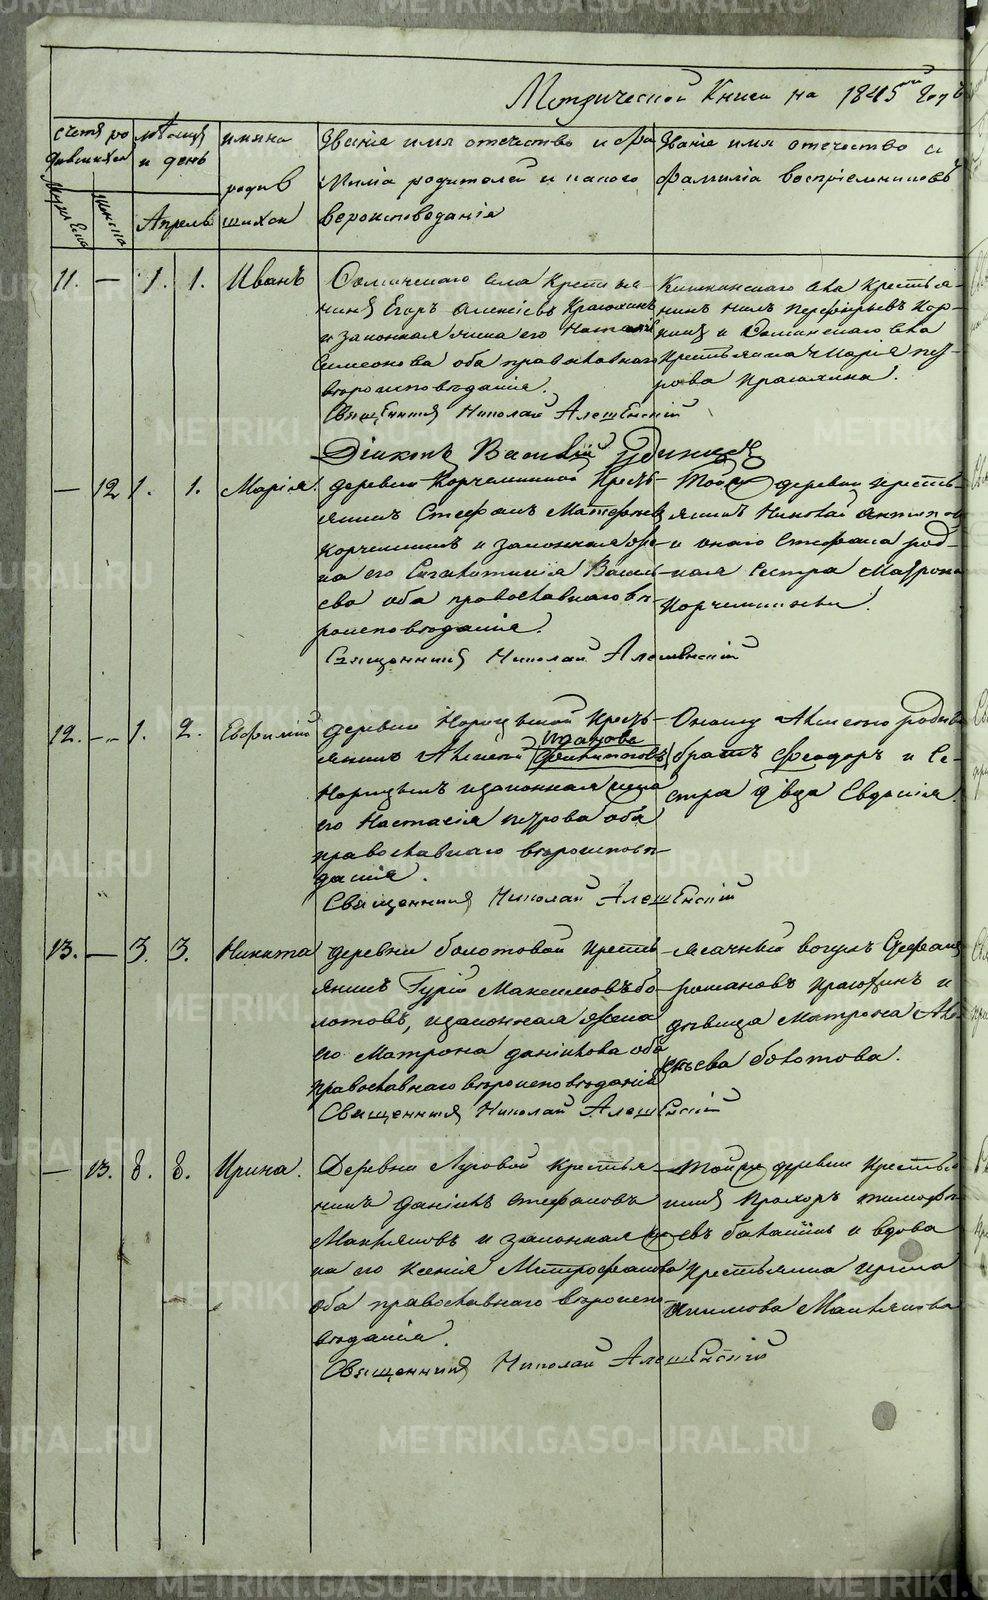 Метрической Книги на 1845ый годъ
счетъ ро
дившихся
Мужеска
Женска
Мѣсяцъ
и день
Апрель
имяна
родив
шихся
Званіе имя отечество и фа
миліа родителей и какого
вероисповеданія
Званіе имя отечество и
фамиліа воспріемниковъ
11. — 1. 1. Иванъ
села Крестья
нинъ Егоръ Алексѣевъ
и законная жена его Наталія
Симеонова оба православнаго
вѣроисповѣданія.
Священникъ Николай Алешенскій
Діаконъ Василій Удинцевъ
села Крестья-
нинъ Нилъ Перфирьевъ Кор-
и села
Крестьянка Марія Пет-
рова
— 12 1. 1. Марія.
деревни Корчемкиной Кресть-
янинъ Стефанъ Матфеевъ
Корчемкинъ и законная же-
на его Василь-
ева оба православнаго вѣ-
роисповѣданія.
Священникъ Николай Алешенскій
Тойже деревни кресть-
янинъ Николай Антипов
и онаго Стефана род-
ная сестра Матрона
Корчемкины.
12. — 1. 2. Евфимій
деревни Корицкой Кресть-
янинъ Алексей Филиповъ
Ивановъ
и законная жена
его Настасія Петрова оба
православнаго вѣроисповѣ-
данія.
Священникъ Николай Алешенскій
Оному Алексею родные
братъ Феодоръ и Се-
стра дѣвца Евдокія.
13. — 3. 3. Никита
деревни болотовой кресть
янинъ Гурій Максимовъ бо-
лотовъ, и законная жена
его Матрона Данилова оба
православнаго вѣроисповѣданія
Священникъ Николай Алешенскій
ясачный вогулъ Стефанъ
романовъ и
дѣвица Матрона Але-
ксѣева болотова.
— 13. 8. 8. Ирина.
Деревни Луговой крестья-
нинъ Данилъ Стефановъ
и законная же-
на его Ксенія Митрофанова
оба православнаго вѣроиспо-
вѣданія.
Священникъ Николай Алешенскій
Тойже деревни крестья
нинъ Прохоръ тимофе-
евъ балакинъ и вдова
крестьянка ирина